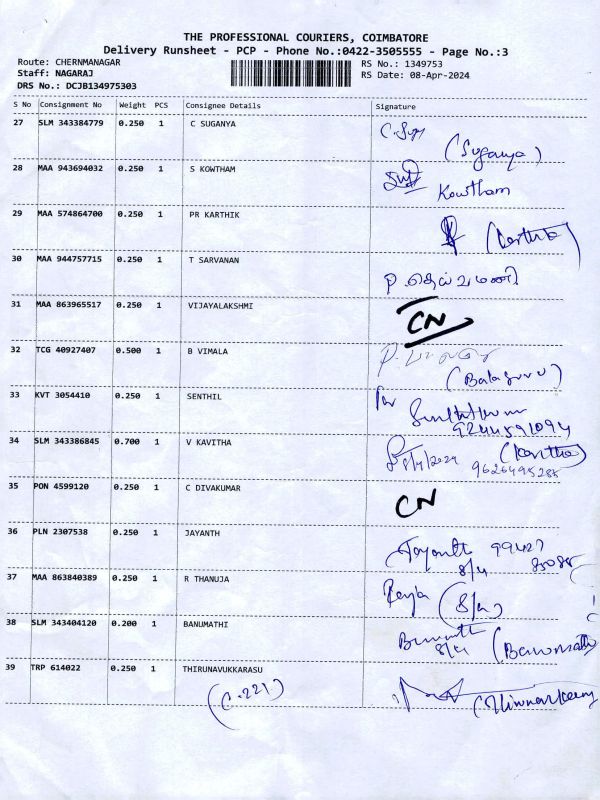 THE PROFESSIONAL COURIERS, COIMBATORE
Delivery Runsheet - PCP - Phone No.:0422-3505555 - Page No.:3
Route: CHERNMANAGAR RS No.: 1349753
Staff: NAGARAJ RS Date: 08-Apr-2024
DRS No.: DCJB134975303
S No Consignment No Weight PCS Consignee Details Signature
27 SLM 343384779 0.250 1 C SUGANYA
(Suganya)
28 MAA 943694032 0.250 1 S KOWTHAM
Kowtham
29 MAA 574864700 0.250 1 PR KARTHIK
(Karthik)
30 MAA 944757715 0.250 1 T SARVANAN
31 MAA 863965517 0.250 1 VIJAYALAKSHMI CN
32 TCG 40927407 0.500 1 B VIMALA
(Balaguru)
33 KVT 3054410 0.250 1 SENTHIL
9244591094
34 SLM 343386845 0.700 1 V KAVITHA
8/4/2024 9626495285
35 PON 4599120 0.250 1 C DIVAKUMAR CN
36 PLN 2307538 0.250 1 JAYANTH
Jayanth 99427
8/4 85085
37 MAA 863840389 0.250 1 R THANUJA
(8/4)
38 SLM 343404120 0.200 1 BANUMATHI
8/4 (Banumathi
39 TRP 614022 0.250 1 THIRUNAVUKKARASU
(C.221)